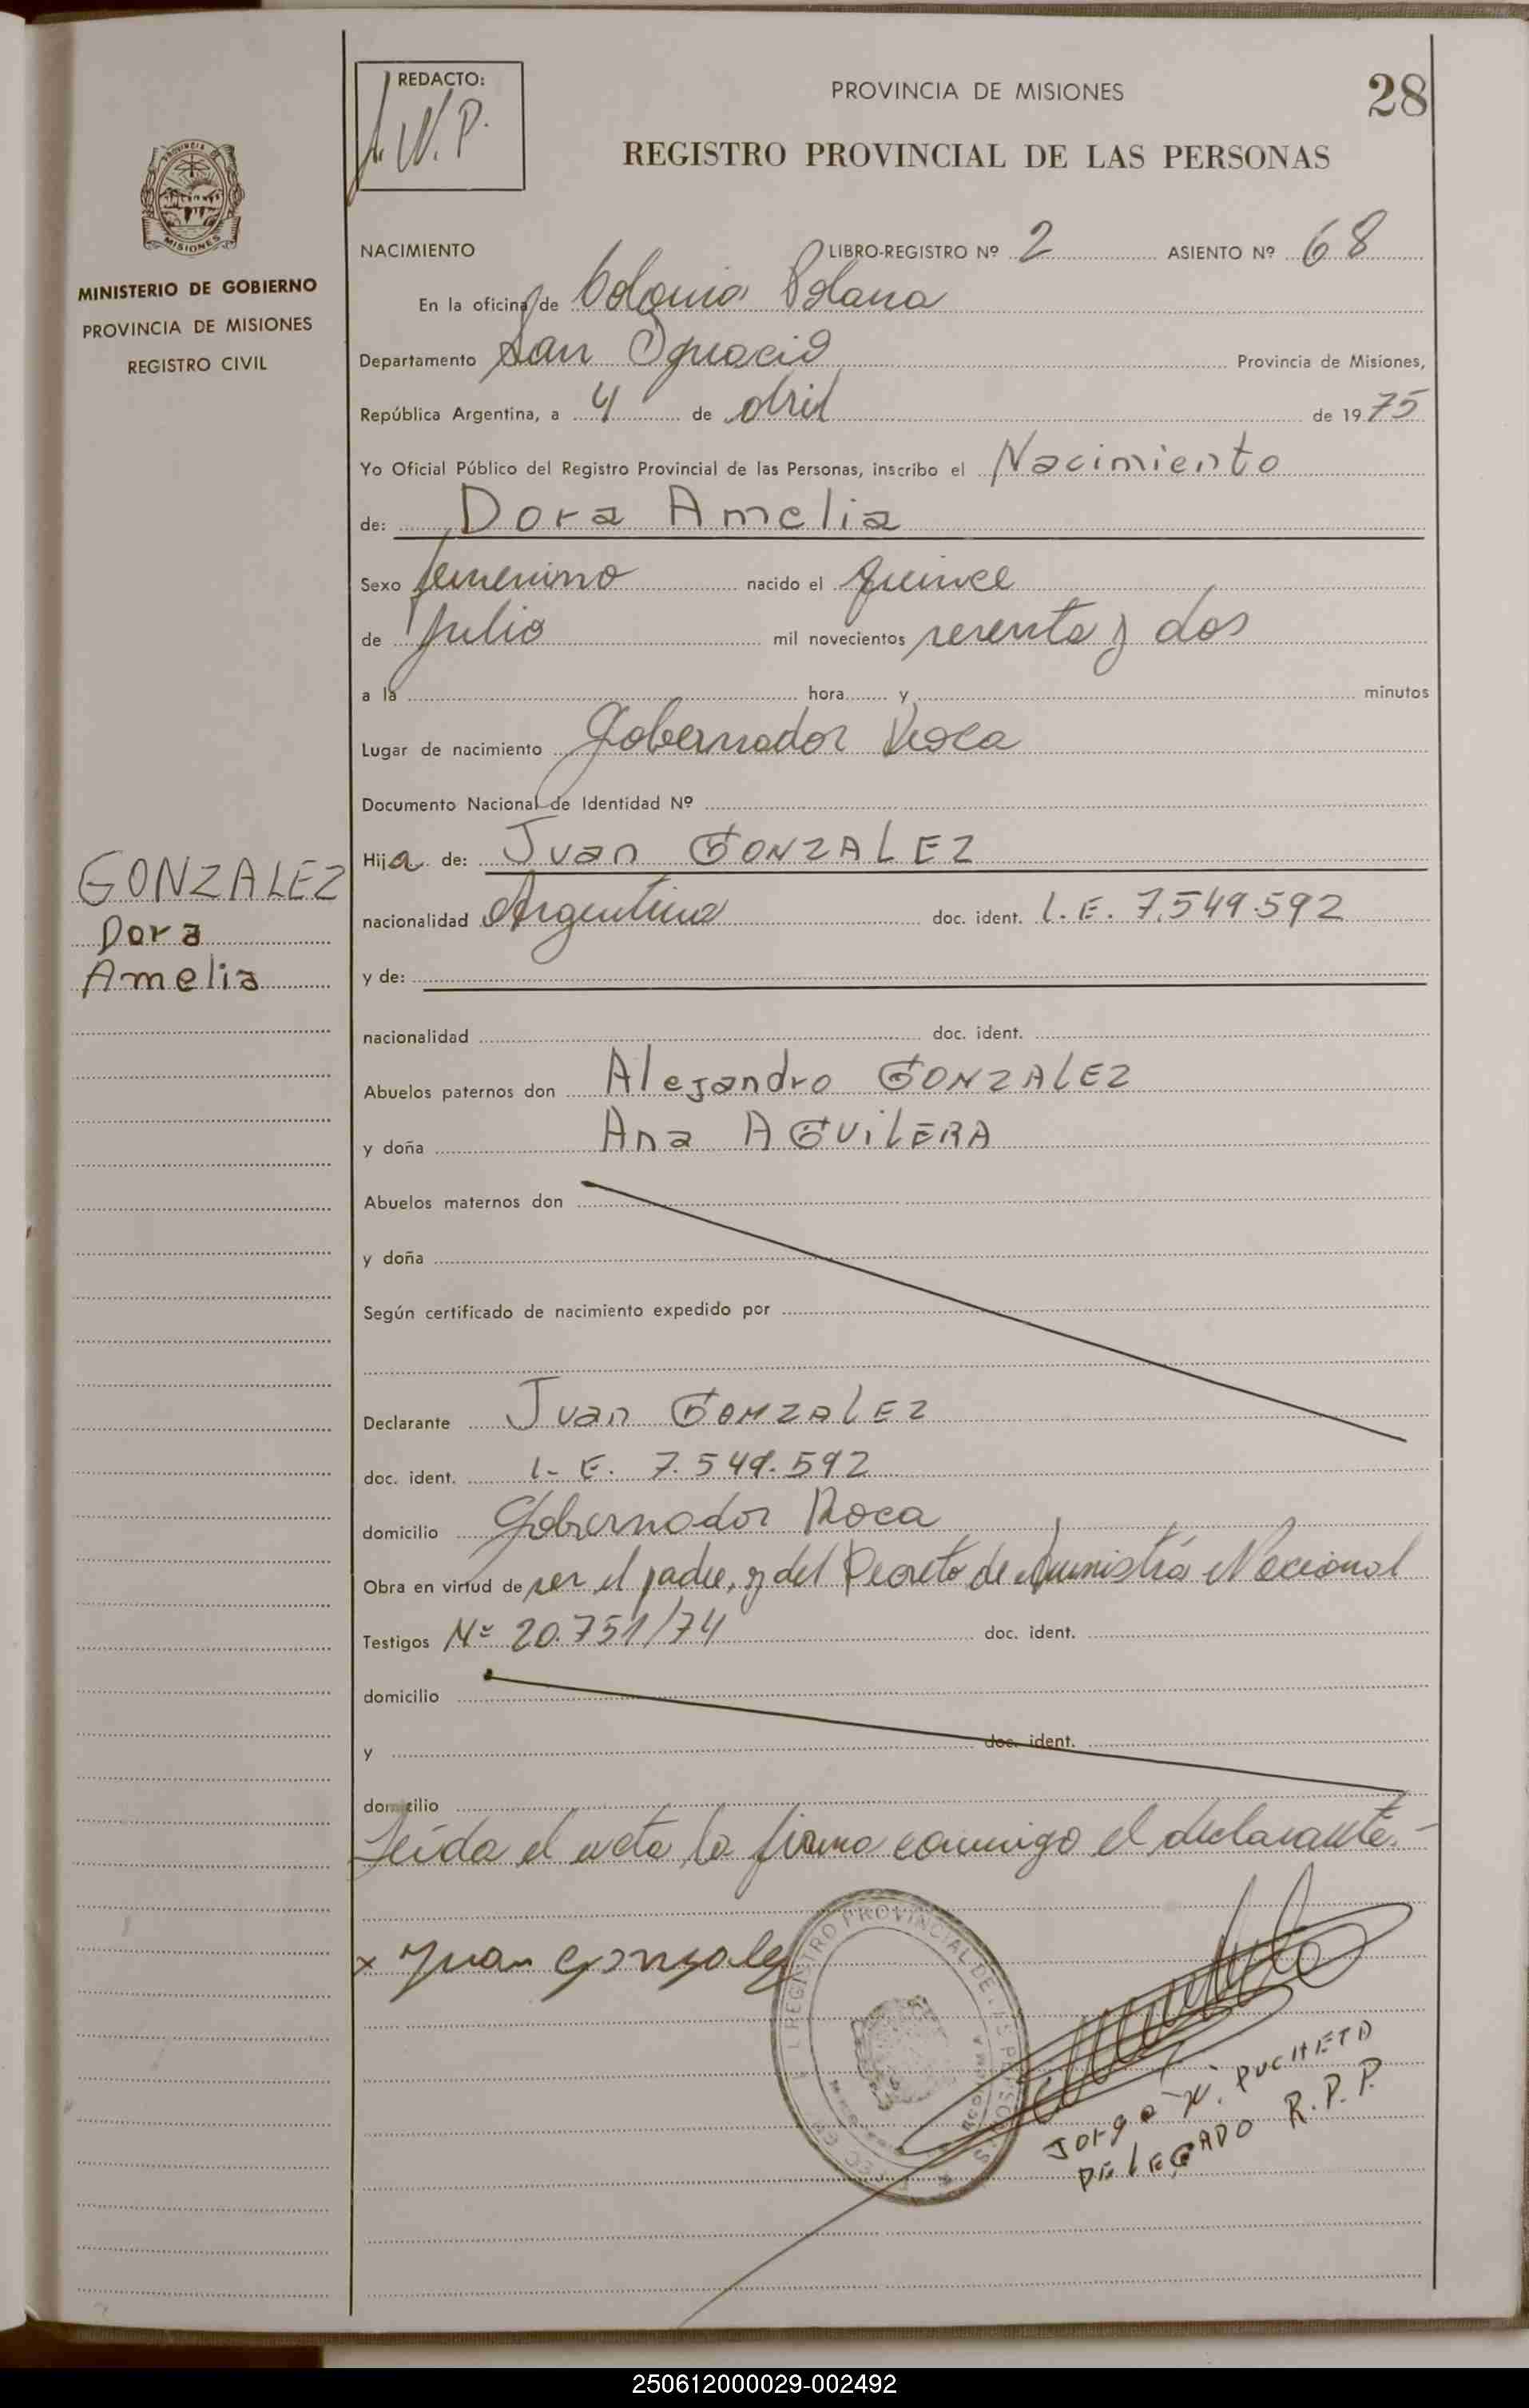 REDACTO:
J.N.P.
PROVINCIA DE MISIONES
28
REGISTRO PROVINCIAL DE LAS PERSONAS
PROVINCIA DE
MISIONES
MINISTERIO DE GOBIERNO
PROVINCIA DE MISIONES
REGISTRO CIVIL
NACIMIENTO LIBRO-REGISTRO Nº 2 ASIENTO Nº 68
En la oficina de Colonia Polana
Departamento San Ignacio Provincia de Misiones,
República Argentina, a 4 de abril de 1975
Yo Oficial Público del Registro Provincial de las Personas, inscribo el Nacimiento
de: Dora Amelia
Sexo femenino nacido el quince
de Julio mil novecientos sesenta y dos
a la hora y minutos
Lugar de nacimiento Gobernador Roca
Documento Nacional de Identidad Nº
GONZALEZ
Dora
Amelia
Hija de: Juan GONZALEZ
nacionalidad Argentina doc. ident. L.E. 7.549.592
y de:
nacionalidad doc. ident.
Abuelos paternos don Alejandro GONZALEZ
y doña Ana AGUILERA
Abuelos maternos don
y doña
Según certificado de nacimiento expedido por
Declarante Juan GONZALEZ
doc. ident. L.E. 7.549.592
domicilio Gobernador Roca
Obra en virtud de ser el padre, y del Decreto de Amnistía Nacional
Testigos Nº 20.751/74 doc. ident.
domicilio
y doc. ident.
domicilio
Leída el acta la firma conmigo el declarante.-
x Juan Gonzalez
REGISTRO PROVINCIAL DE LAS PERSONAS
Jorge N. PUCHETA
DELEGADO R.P.P.
250612000029-002492